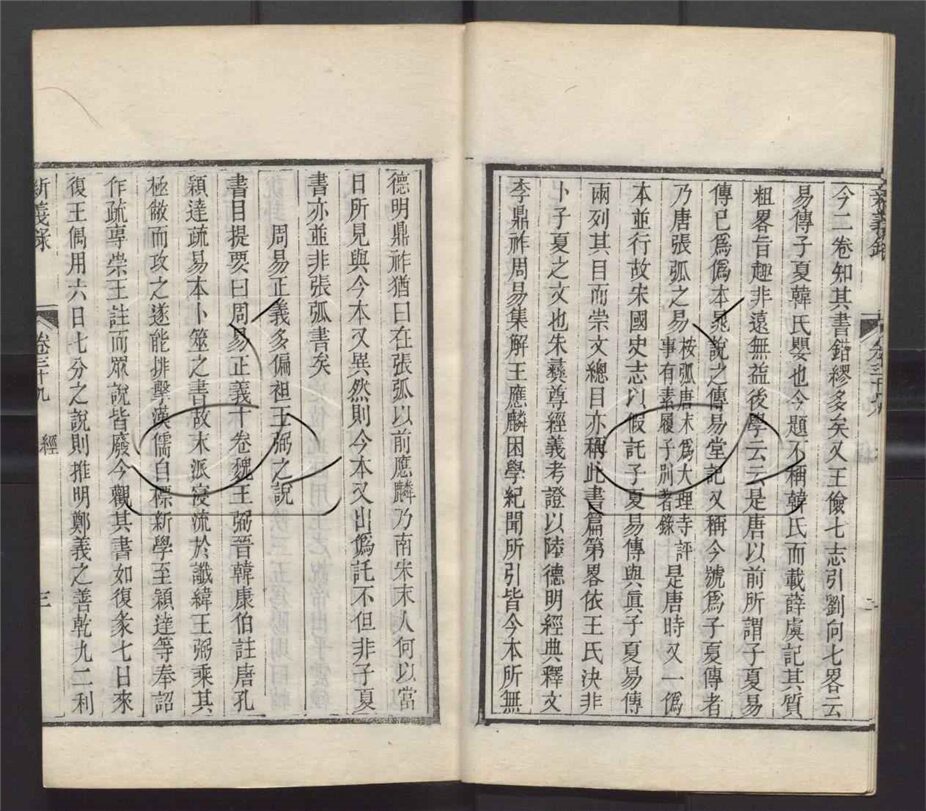 今二卷知其書錯繆多矣又王儉七志引劉向七畧云
易傳子夏韓氏嬰也今題不稱韓氏而載薛虞記其質
粗畧旨趣非遠無益後學云云是唐以前所謂子夏易
傳已爲僞本晁說之傳易堂記又稱今號爲子夏傳者
乃唐張弧之易按弧唐末爲大理寺評事有素履子別著錄是唐時又一僞
本並行故宋國史志以假託子夏易傳與眞子夏易傳
兩列其目而崇文總目亦稱此書篇第畧依王氏決非
卜子夏之文也朱彝尊經義考證以陸德明經典釋文
李鼎祚周易集解王應麟困學紀聞所引皆今本所無
德明鼎祚猶曰在張弧以前應麟乃南宋末人何以當
日所見與今本又異然則今本又出僞託不但非子夏
書亦並非張弧書矣
周易正義多偏祖王弼之說
書目提要曰周易正義十卷魏王弼晉韓康伯註唐孔
穎達疏易本卜筮之書故末派寖流於讖緯王弼乘其
極敝而攻之遂能排擊漢儒自標新學至穎達等奉詔
作疏專崇王註而眾說皆廢今觀其書如復彖七日來
復王偶用六日七分之說則推明鄭義之善乾九二利
新義錄
卷三十九
經
三